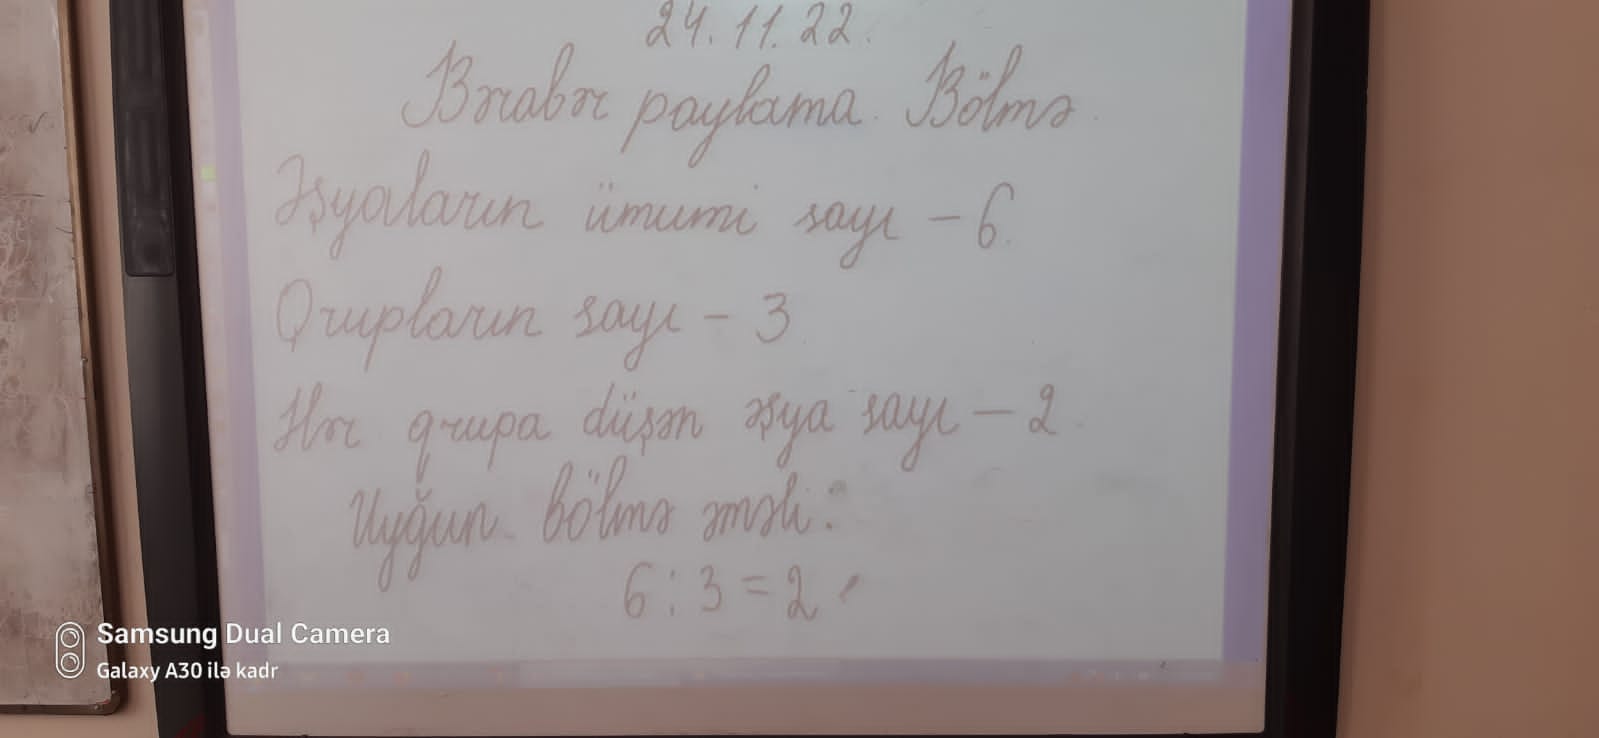 24.11.22.
Bərabər paylama. Bölmə.
Əşyaların ümumi sayı – 6.
Qrupların sayı – 3.
Hər qrupa düşən əşya sayı – 2.
Uyğun bölmə əməli:
6 : 3 = 2
Samsung Dual Camera
Galaxy A30 ilə kadr